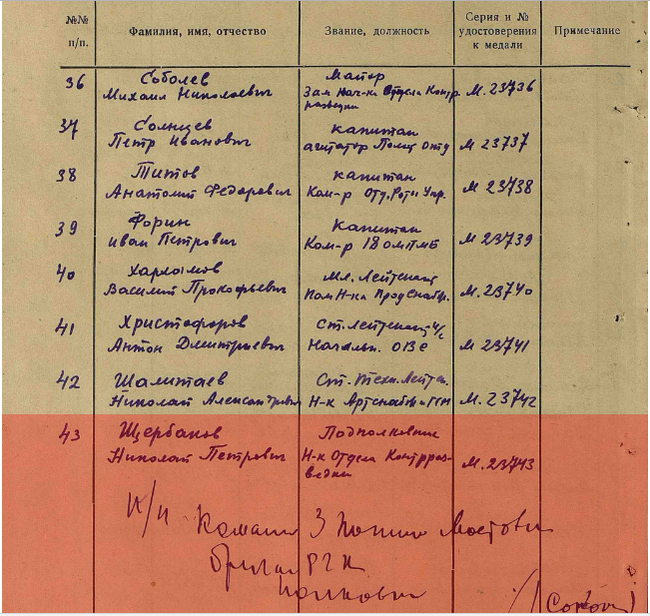 №№ п/п.
Фамилия, имя, отчество
Звание, должность
Серия и № удостоверения к медали
Примечание
36 Соболев Майор
Михаил Николаевич Зам Нач-ка Отдела Контр М. 23736
разведки
37 Солнцев капитан
Петр Иванович агитатор Полит Отд М 23737
38 Титов капитан
Анатолий Федорович Ком-р Отд. Роты Упр. М 23738
39 Форин Капитан
Иван Петрович Ком-р 18 омпмб М 23739
40 Харламов Мл. Лейтенант
Василий Прокофьевич Пом Н-ка ПродСнабж. М. 23740
41 Христофоров Ст. Лейтенант
Антон Дмитриевич Начальн. М 23741
42 Ст. Техн. Лейтен.
Николай Александрович Н-к М. 23742
43 Щербаков Подполковник
Николай Петрович Н-к Отдела Контрраз- М. 23743
ведки
п/п Команд 3 Понтон Мостовой
бригады РГК
полковник